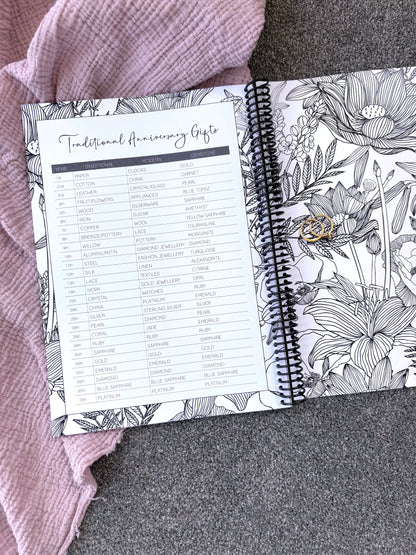 Traditional Anniversary Gifts
YEAR TRADITIONAL MODERN GEMSTONE
1st PAPER CLOCKS GOLD
2nd COTTON CHINA GARNET
3rd LEATHER CRYSTAL/GLASS PEARL
4th FRUIT/FLOWERS APPLIANCES BLUE TOPAZ
5th WOOD SILVERWARE SAPPHIRE
6th IRON SUGAR AMETHYST
7th COPPER WOOL YELLOW SAPPHIRE
8th BRONZE/POTTERY LACE TOURMALINE
9th WILLOW POTTERY MORGANITE
10th ALUMINIUM/TIN DIAMOND JEWELLERY DIAMOND
11th STEEL FASHION JEWELLERY TURQUOISE
12th SILK LINEN ALEXANDRITE
13th LACE TEXTILES CITRINE
14th IVORY GOLD JEWELLERY OPAL
15th CRYSTAL WATCHES RUBY
20th CHINA PLATINUM EMERALD
25th SILVER STERLING SILVER SILVER
30th PEARL DIAMOND PEARL
35th CORAL JADE EMERALD
40th RUBY RUBY RUBY
45th SAPPHIRE SAPPHIRE SAPPHIRE
50th GOLD GOLD GOLD
55th EMERALD EMERALD EMERALD
60th DIAMOND DIAMOND DIAMOND
65th BLUE SAPPHIRE BLUE SAPPHIRE BLUE SAPPHIRE
70th PLATINUM PLATINUM PLATINUM